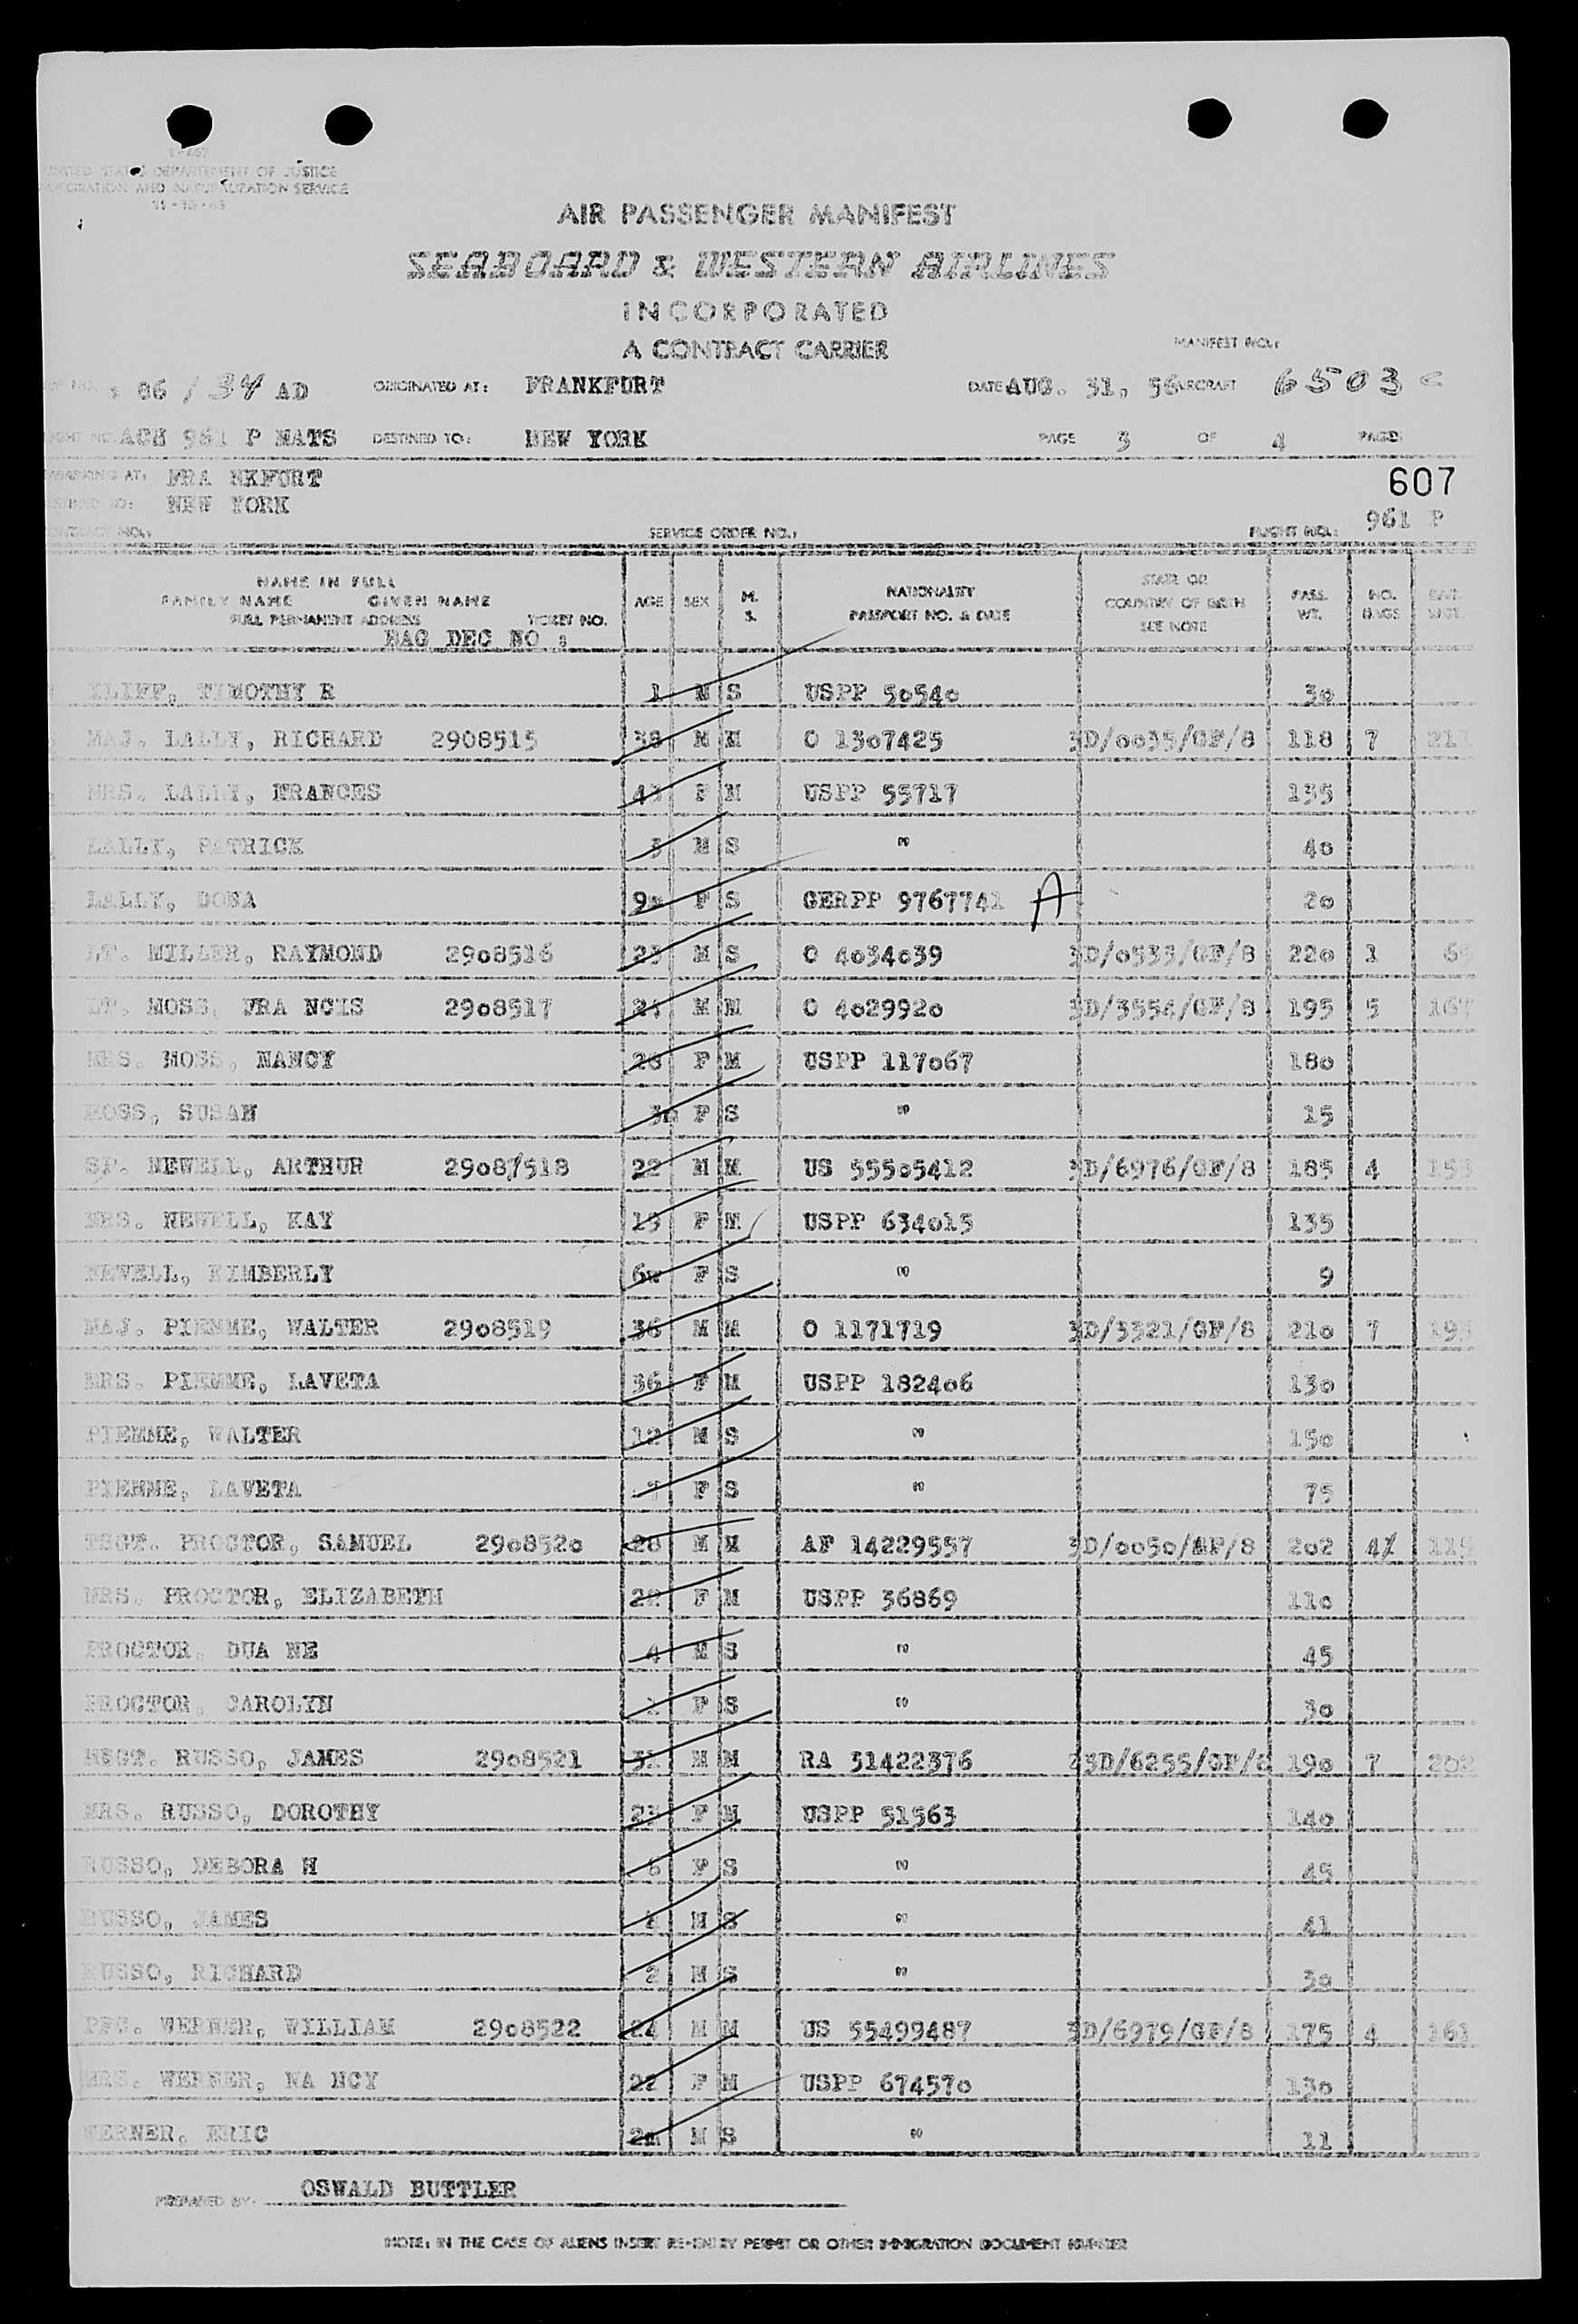 I-467
UNITED STATES DEPARTMENT OF JUSTICE
IMMIGRATION AND NATURALIZATION SERVICE
AIR PASSENGER MANIFEST
SEABOARD & WESTERN AIRLINES
INCORPORATED
A CONTRACT CARRIER
MANIFEST NO.:
86 / 34 AD ORIGINATED AT: FRANKFURT DATE AUG. 31, 56 AIRCRAFT 6503 C
FLIGHT NO. ACH 961 P MATS DESTINED TO: NEW YORK PAGE 3 OF 4 PAGES
EMBARKING AT: FRA NKFURT
607
DESTINED TO: NEW YORK
CONTRACT NO.: SERVICE ORDER NO.: FLIGHT NO.: 961 P
NAME IN FULL
FAMILY NAME GIVEN NAME
FULL PERMANENT ADDRESS TICKET NO.
BAG DEC NO :
AGE SEX M. S. NATIONALITY PASSPORT NO. & DATE STATE OR COUNTRY OF BIRTH SEE NOTE PASS. WT. NO. BAGS BAG. WGT.
ILIFF, TIMOTHY R 1 M S USPP 50540 30
MAJ. LALLY, RICHARD 2908515 38 M M O 1307425 3D/0035/GF/8 118 7 211
MRS. LALLY, FRANCES 43 F M USPP 55717 135
LALLY, PATRICK 3 M S " 40
LALLY, DONA 9m F S GERPP 9767741 A 20
LT. MILLER, RAYMOND 2908516 23 M S O 4034039 3D/0533/GF/8 220 1
LT. MOSS, FRA NCIS 2908517 24 M M O 4029920 3D/3554/GF/8 195 5 167
MRS. MOSS, NANCY 26 F M USPP 117067 180
MOSS, SUSAN 3m F S " 15
SP. NEWELL, ARTHUR 29087518 22 M M US 55505412 3D/6976/GF/8 185 4 153
MRS. NEWELL, KAY 19 F M USPP 634015 135
NEWELL, KIMBERLY 6w F S " 9
MAJ. PIEMME, WALTER 2908519 36 M M O 1171719 3D/3321/GF/8 210 7 193
MRS. PIEMME, LAVETA 36 F M USPP 182406 130
PIEMME, WALTER 12 M S " 150
PIEMME, LAVETA 7 F S " 75
TSGT. PROCTOR, SAMUEL 2908520 28 M M AF 14229557 3D/0050/AF/8 202 4 115
MRS. PROCTOR, ELIZABETH F M USPP 36869 110
PROCTOR, DUA NE 4 M S " 45
PROCTOR, CAROLYN F S " 30
MSGT. RUSSO, JAMES 2908521 31 M M RA 31422376 23D/6255/GF/8 190 7 202
MRS. RUSSO, DOROTHY 23 F M USPP 51563 140
RUSSO, DEBORA H 6 F S " 45
RUSSO, JAMES 4 M S " 41
RUSSO, RICHARD 2 M S " 30
PFC. WERNER, WILLIAM 2908522 24 M M US 55499487 3D/6979/GF/8 175 4 161
MRS. WERNER, NA NCY 22 F M USPP 674570 130
WERNER, ERIC 2m M S " 11
PREPARED BY: OSWALD BUTTLER
NOTE: IN THE CASE OF ALIENS INSERT RE-ENTRY PERMIT OR OTHER IMMIGRATION DOCUMENT NUMBER